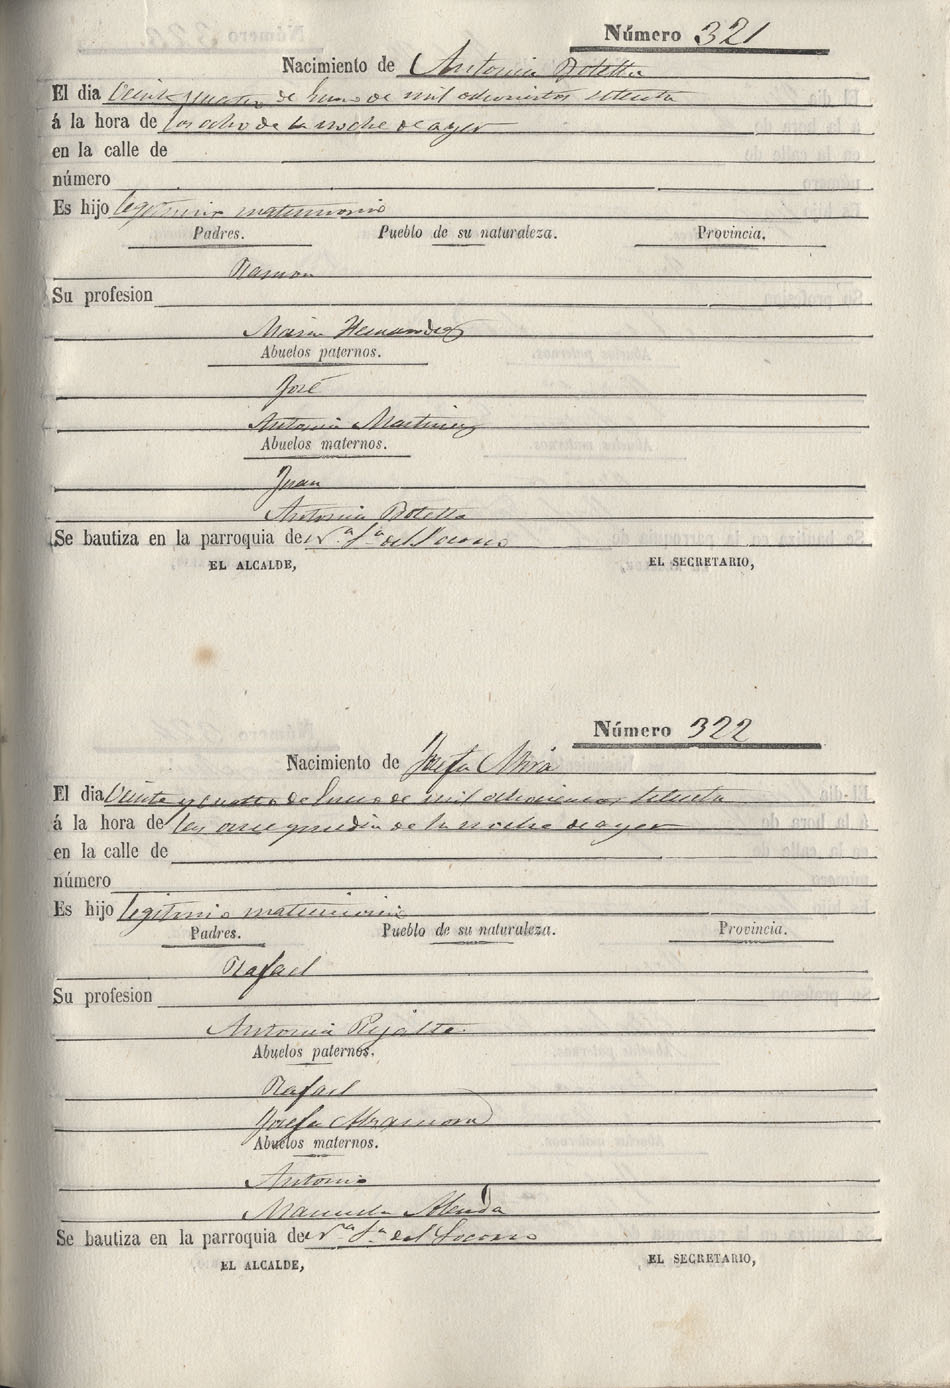 Número 321
Nacimiento de Antonia Botella
El dia Veinte y cuatro de Enero de mil ochocientos setenta
á la hora de las ocho de la noche de ayer
en la calle de
número
Es hijo legitimo matrimonio
Padres. Pueblo de su naturaleza. Provincia.
Ramon
Su profesion
Maria Hernandez
Abuelos paternos.
José
Antonia Martinez
Abuelos maternos.
Juan
Antonia Botella
Se bautiza en la parroquia de Nª Sª del Socorro
EL ALCALDE, EL SECRETARIO,
Número 322
Nacimiento de Josefa Mira
El dia Veinte y cuatro de Enero de mil ochocientos setenta
á la hora de las once y media de la noche de ayer
en la calle de
número
Es hijo legitimo matrimonio
Padres. Pueblo de su naturaleza. Provincia.
Rafael
Su profesion
Antonia
Abuelos paternos.
Rafael
Josefa
Abuelos maternos.
Antonio
Manuela
Se bautiza en la parroquia de Nª Sª del Socorro
EL ALCALDE, EL SECRETARIO,